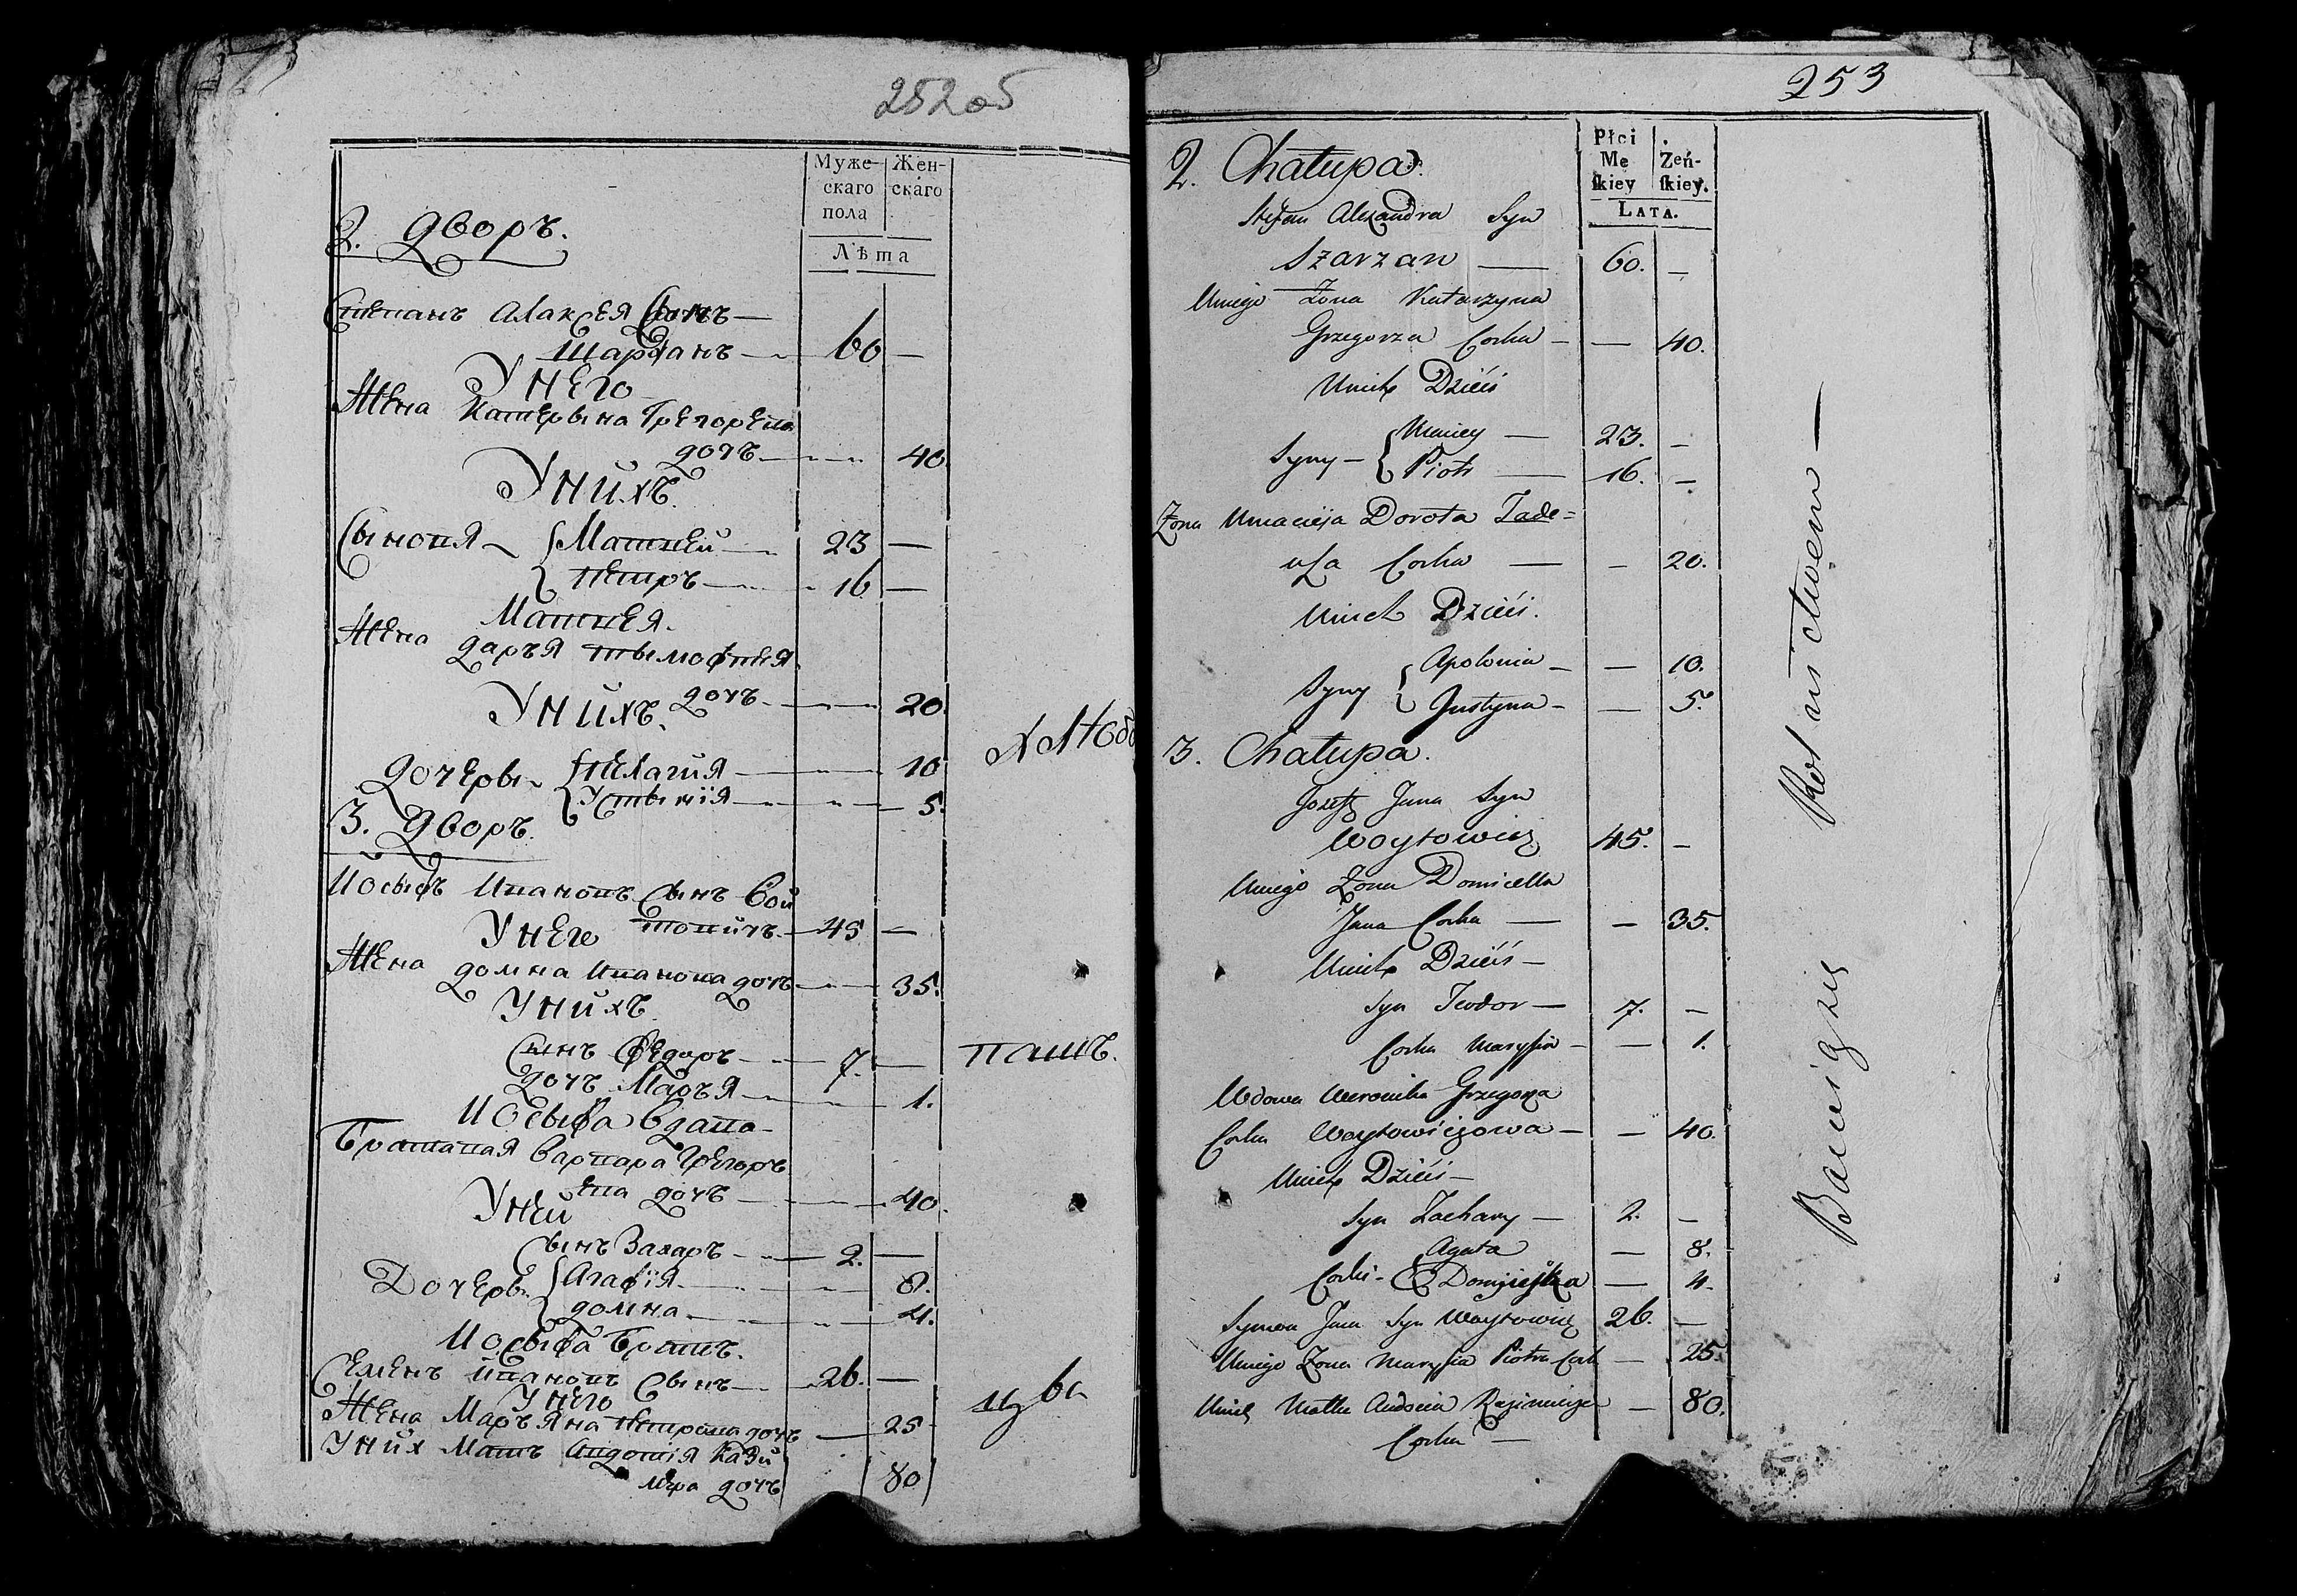 252об
Муже-
скаго
пола
Жен-
скаго
Лѣта
2. дворъ.
Степанъ Алаксея Сынъ —
Шарзанъ — 60 —
У него
Жена Катерына Грегорева
дочъ — 40
У нихъ.
Сыновя { Матвей — 23 —
Петръ — 16 —
Матвея.
Жена даръя тымофѣя
дочъ — 20
У нихъ.
дочеры { Пелагия — 10
Устыния — 5.
3. дворъ.
Иосыфъ Ивановъ Сынъ Вой
товичъ — 45 —
У него
Жена домна Иванова дочъ — 35.
У нихъ
Сынъ Федоръ — 7. —
дочъ Маръя — 1.
Иосыфа вдова
Братавая варвара Грегоръ
ева дочъ — 40.
У ней
Сынъ Захаръ — 2. —
Дочеры { Агафия — 8.
домна — 4.
Иосыфа Братъ.
Семенъ Ивановъ Сынъ — 26. —
У него
Жена Маръяна Петрова дочъ — 25
У них Матъ Авдотия Кази
мера дочъ 80
пашъ.
253
Płci
Mę
skiey
Żeń-
skiey.
LATA.
2. Chałupa.
Stefan Alexandra Syn
Szarzan — 60. —
Uniego Żona Katarzyna
Grzegorza Corka — — 40.
Unich Dzieci
Syny — { Maciey — 23. —
Piotr — 16. —
Żona Umacieja Dorota Tade=
usza Corka — — 20.
Unich Dzieci.
Syny { Apolonia — — 10.
Justyna — — 5.
3. Chałupa.
Jozef Jana Syn
Woytowicz 45. —
Uniego Żona Domicella
Jana Corka — — 35.
Unich Dzieci —
Syn Teodor — 7. —
Corka Marysia — — 1.
Wdowa Weronika Grzegorza
Corka Woytowiczowa — — 40.
Unich Dzieci —
Syn Zachary — 2. —
Agata — 8.
Corki — { — 4.
Symon Jana Syn Woytowicz 26. —
Uniego Żona Marysia Piotra Cork — 25.
Unich Matka Audocia Kazimierza — 80.
Corka —